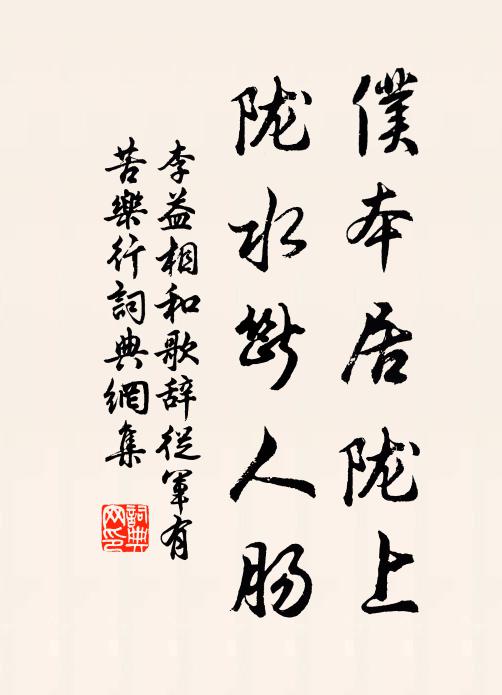 僕本居陇上
陇水斷人肠
李益相和歌辞從軍有
苦樂行詞典網集
詞典
网印